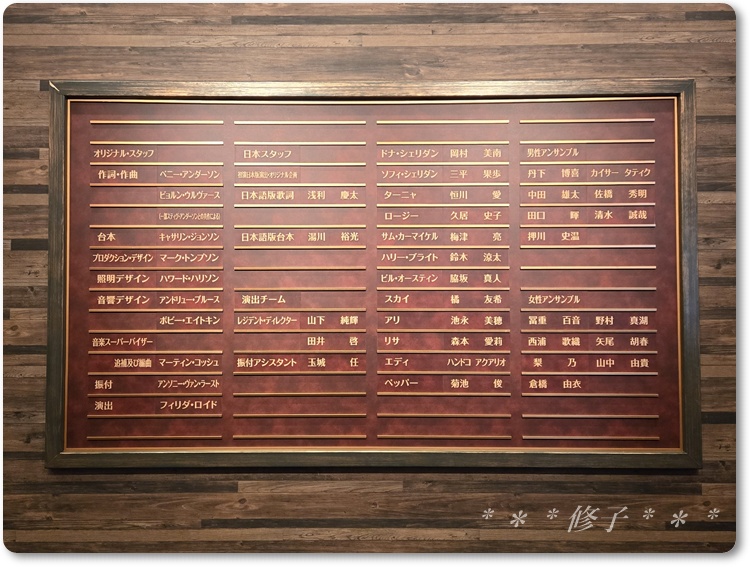 オリジナル・スタッフ
作詞・作曲 ベニー・アンダーソン
ビョルン・ウルヴァース
(一部スティグ・アンダーソンとの共作による)
台本 キャサリン・ジョンソン
プロダクション・デザイン マーク・トンプソン
照明デザイン ハワード・ハリソン
音響デザイン アンドリュー・ブルース
ボビー・エイトキン
音楽スーパーバイザー
追補及び編曲 マーティン・コッシュ
振付 アンソニー・ヴァン・ラースト
演出 フィリダ・ロイド
日本スタッフ
日本語版歌詞 浅利 慶太
日本語版台本 湯川 裕光
演出チーム
レジデント・ディレクター 山下 純輝
田井 啓
振付アシスタント 玉城 任
ドナ・シェリダン 岡村 美南
ソフィ・シェリダン 三平 果歩
ターニャ 恒川 愛
ロージー 久居 史子
サム・カーマイケル 梅津 亮
ハリー・ブライト 鈴木 涼太
ビル・オースティン 脇坂 真人
スカイ 橘 友希
アリ 池永 美穂
リサ 森本 愛莉
エディ ハンドコ アクアリオ
ペッパー 菊池 俊
男性アンサンブル
丹下 博喜 カイサー タティク
中田 雄太 佐橋 秀明
田口 暉 清水 誠哉
押川 史温
女性アンサンブル
冨重 百音 野村 真湖
西浦 歌織 矢尾 胡春
梨 乃 山中 由貴
倉橋 由衣
* * * 修子 * * *